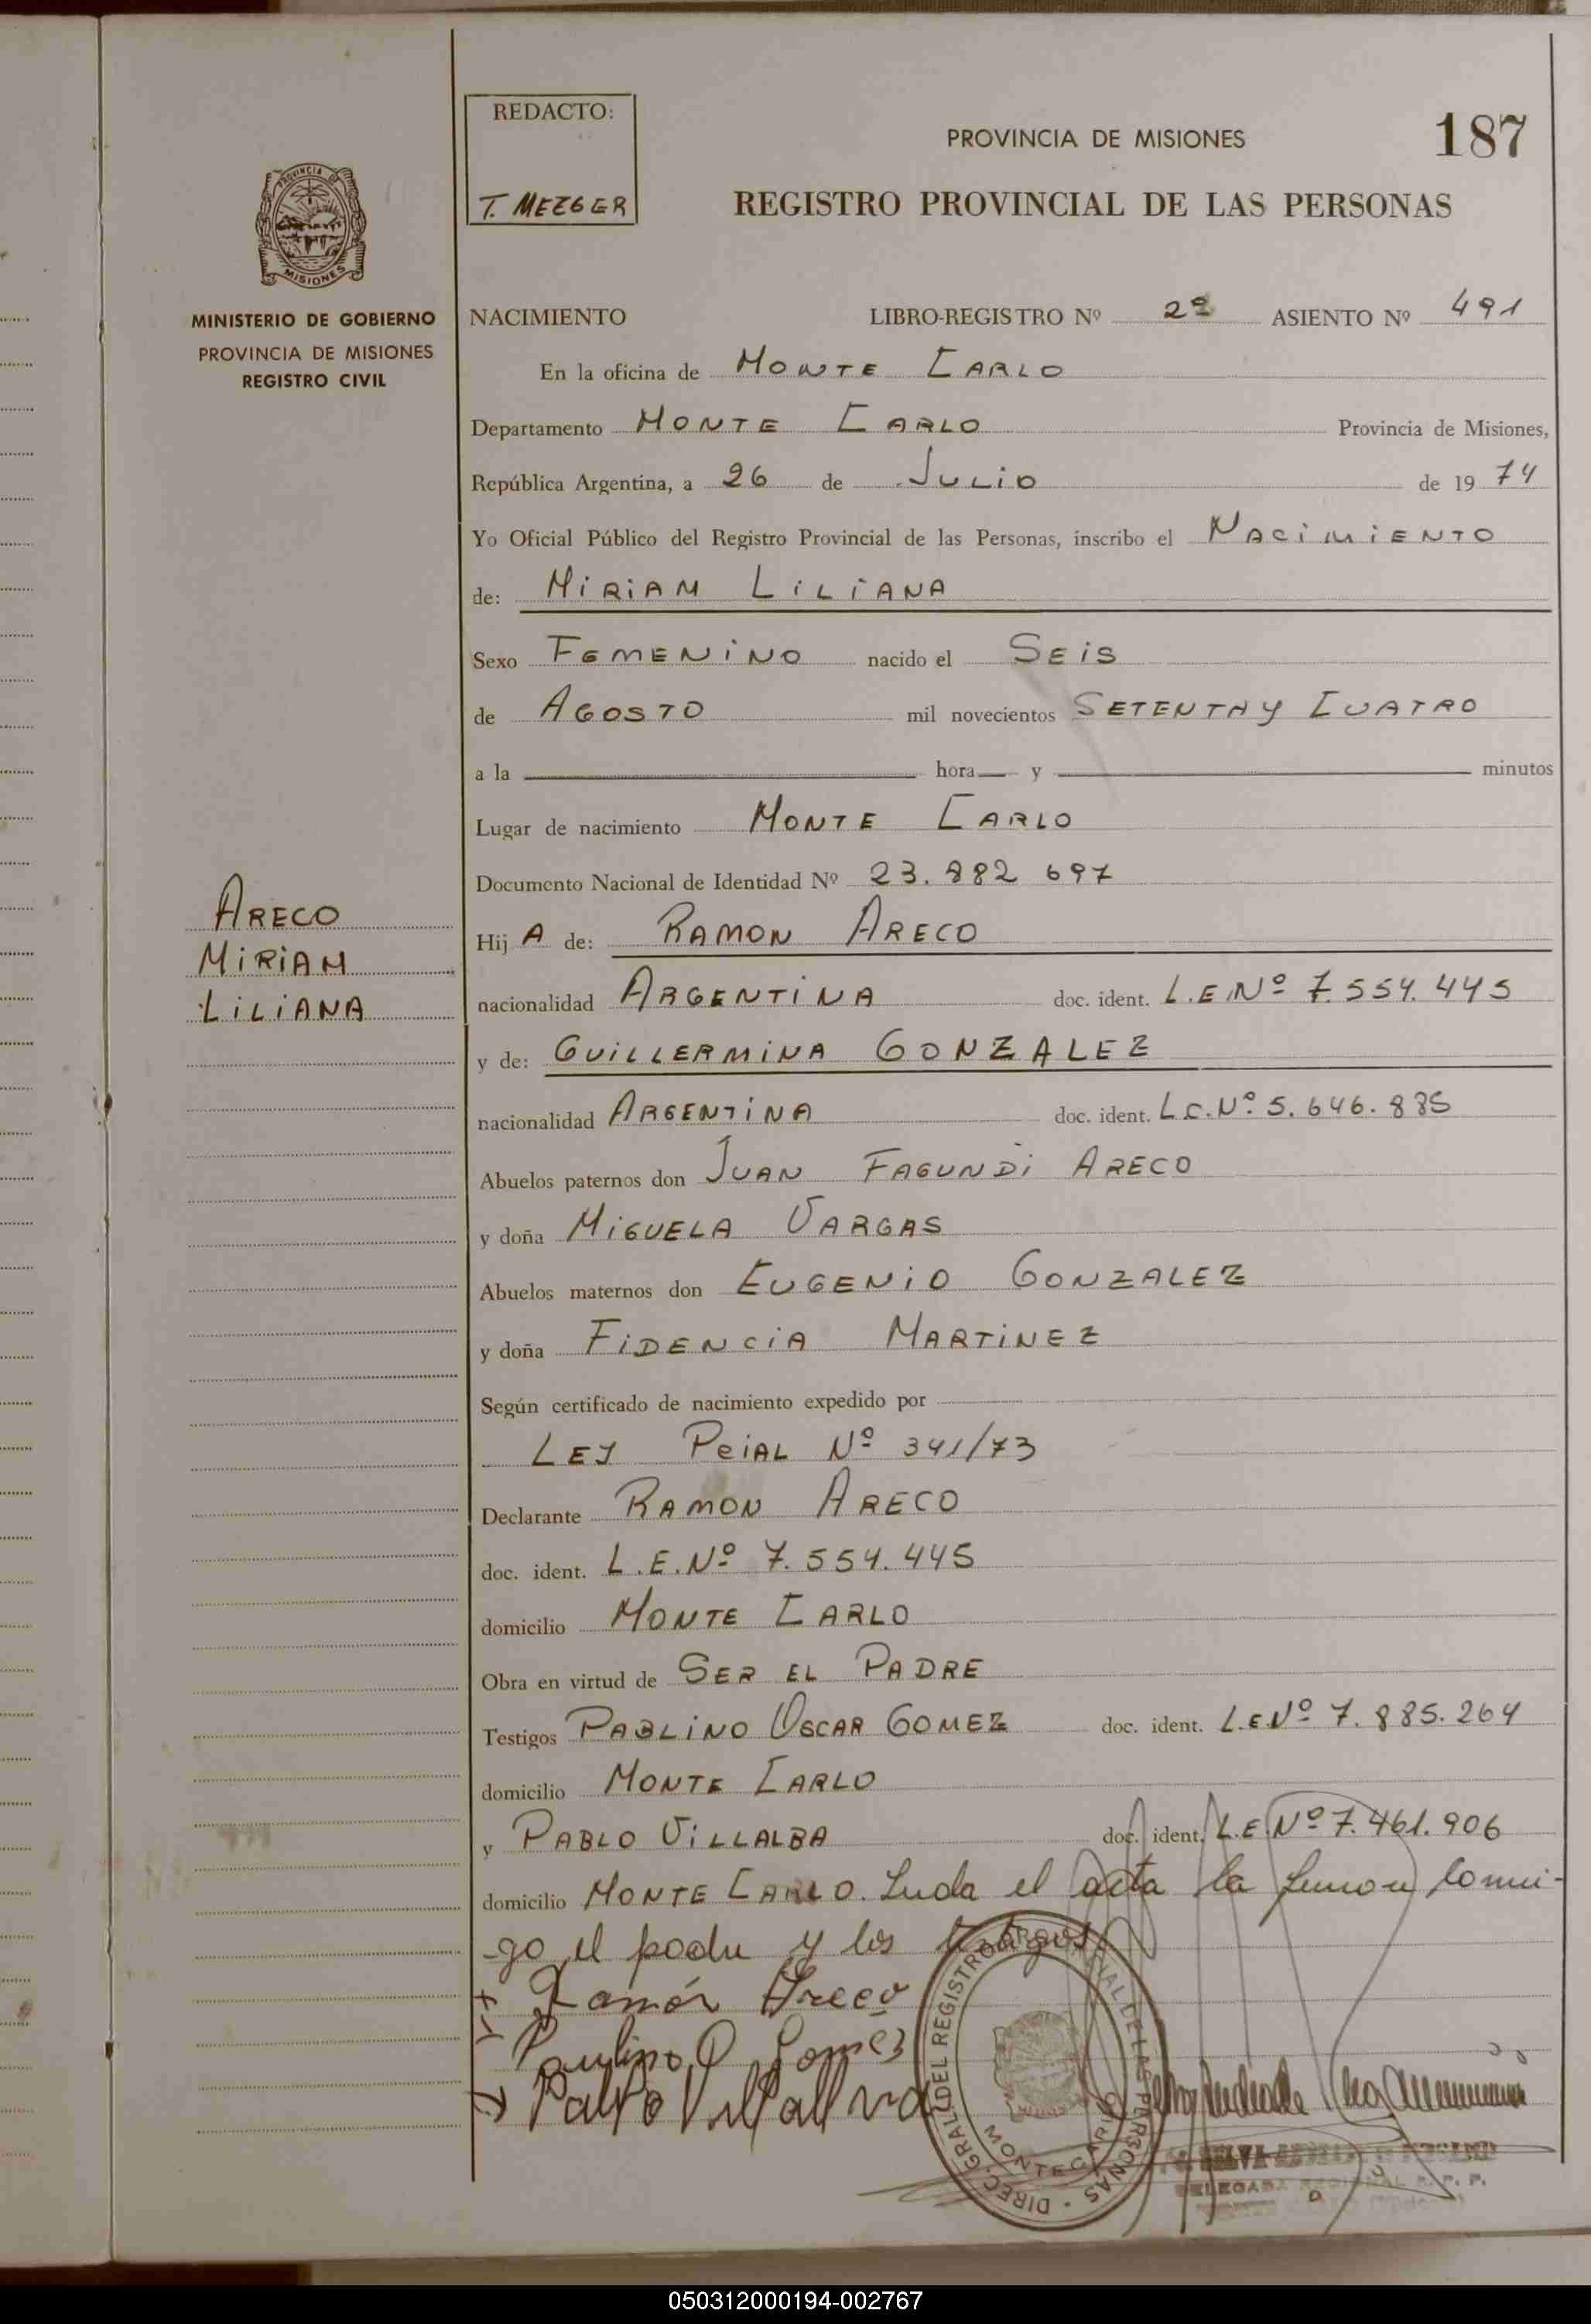 REDACTO:
T. MEZGER
PROVINCIA DE MISIONES
187
REGISTRO PROVINCIAL DE LAS PERSONAS
PROVINCIA DE
MISIONES
MINISTERIO DE GOBIERNO
PROVINCIA DE MISIONES
REGISTRO CIVIL
NACIMIENTO LIBRO-REGISTRO Nº 2º ASIENTO Nº 491
En la oficina de MONTE CARLO
Departamento MONTE CARLO Provincia de Misiones,
República Argentina, a 26 de JULIO de 19 74
Yo Oficial Público del Registro Provincial de las Personas, inscribo el NACIMIENTO
de: MIRIAM LILIANA
Sexo FEMENINO nacido el SEIS
de AGOSTO mil novecientos SETENTAY CUATRO
a la hora y minutos
Lugar de nacimiento MONTE CARLO
Documento Nacional de Identidad Nº 23.882 697
ARECO
MIRIAM
LILIANA
Hij A de: RAMON ARECO
nacionalidad ARGENTINA doc. ident. L.E.Nº 7.554.445
y de: GUILLERMINA GONZALEZ
nacionalidad ARGENTINA doc. ident. L.C.Nº 5.646.885
Abuelos paternos don JUAN FAGUNDI ARECO
y doña MIGUELA VARGAS
Abuelos maternos don EUGENIO GONZALEZ
y doña FIDENCIA MARTINEZ
Según certificado de nacimiento expedido por
LEY PCIAL Nº 341/73
Declarante RAMON ARECO
doc. ident. L.E.Nº 7.554.445
domicilio MONTE CARLO
Obra en virtud de SER EL PADRE
Testigos PABLINO OSCAR GOMEZ doc. ident. L.E.Nº 7.885.264
domicilio MONTE CARLO
y PABLO VILLALBA doc. ident. L.E.Nº 7.461.906
domicilio MONTE CARLO. Leida el acta la firman conmi-
-go el padre y los testigos
Ramón Areco
Paulino O Gomez
Pablo Villalva
DIREC. GRAL. DEL REGISTRO PROVINCIAL DE LAS PERSONAS
MONTECARLO
050312000194-002767